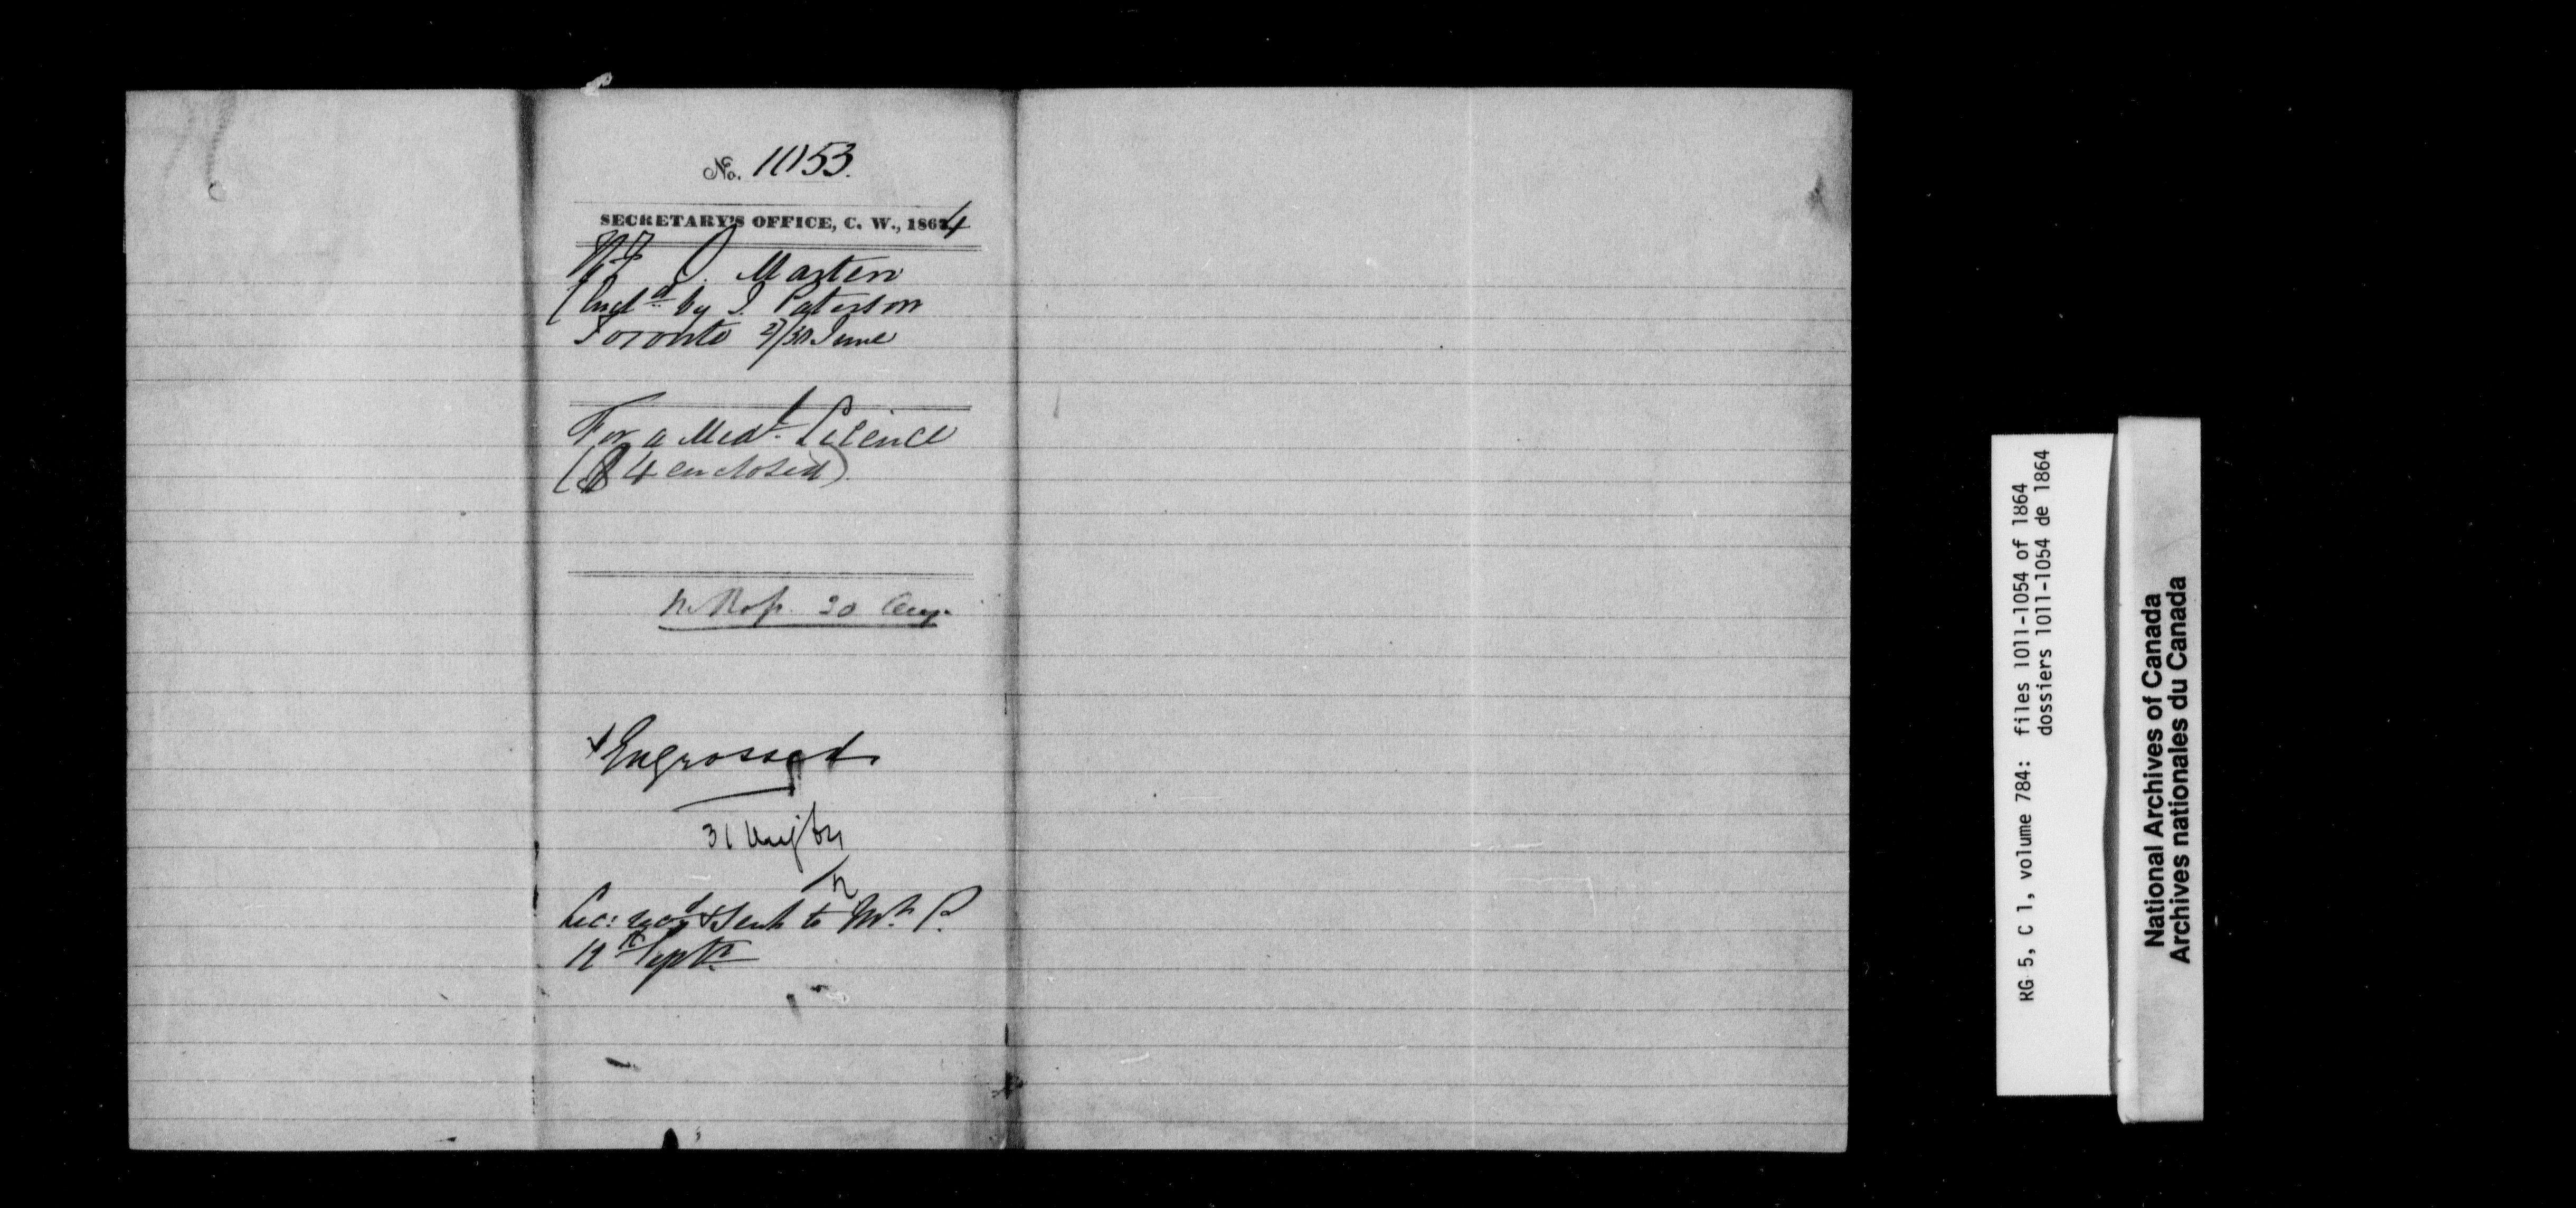 No. 1053.
SECRETARY'S OFFICE, C. W., 1864
J. Marten
(Encd by J. Paterson
Toronto 27/30 June
For a Medl Licence
($4 enclosed)
30 Aug.
Engrossed
31 Aug 64
Lic: recd & sent to Mr. P.
12th Septr
RG 5, C 1, volume 784: files 1011-1054 of 1864
dossiers 1011-1054 de 1864
National Archives of Canada
Archives nationales du Canada